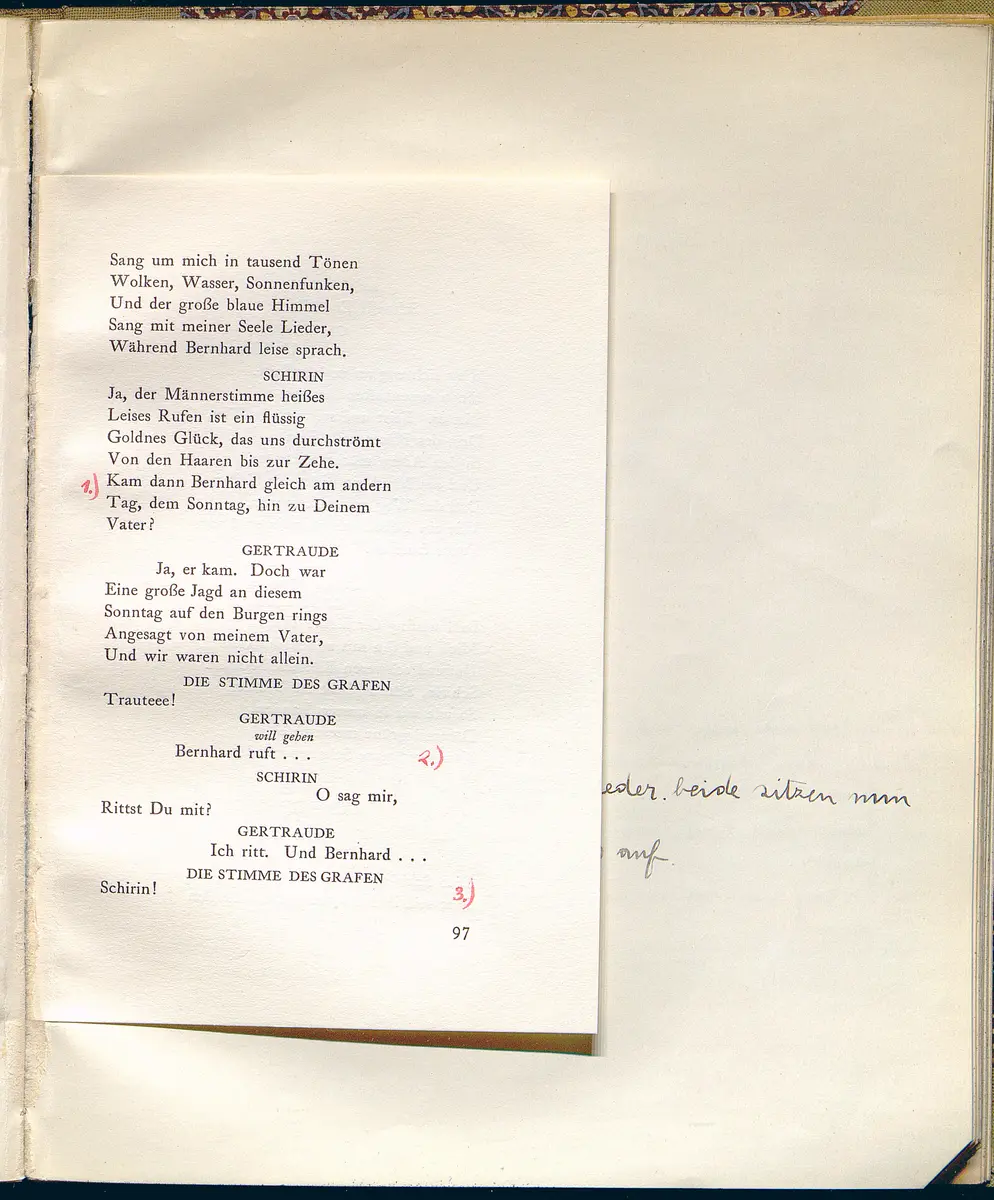 Sang um mich in tausend Tönen
Wolken, Wasser, Sonnenfunken,
Und der große blaue Himmel
Sang mit meiner Seele Lieder,
Während Bernhard leise sprach.
SCHIRIN
Ja, der Männerstimme heißes
Leises Rufen ist ein flüssig
Goldnes Glück, das uns durchströmt
Von den Haaren bis zur Zehe.
1.) Kam dann Bernhard gleich am andern
Tag, dem Sonntag, hin zu Deinem
Vater?
GERTRAUDE
Ja, er kam. Doch war
Eine große Jagd an diesem
Sonntag auf den Burgen rings
Angesagt von meinem Vater,
Und wir waren nicht allein.
DIE STIMME DES GRAFEN
Trauteee!
GERTRAUDE
will gehen
Bernhard ruft . . . 2.)
SCHIRIN
O sag mir,
eder. beide sitzen nun
Rittst Du mit?
GERTRAUDE
Ich ritt. Und Bernhard . . .
auf.
DIE STIMME DES GRAFEN
Schirin! 3.)
97